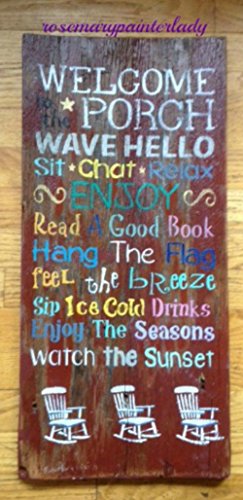 rosemarypainterlady
WELCOME
to the ★ PORCH
WAVE HELLO
Sit ★ Chat ★ Relax
ENJOY
Read A Good Book
Hang The Flag
feel the breeze
Sip Ice Cold Drinks
Enjoy The Seasons
Watch the Sunset